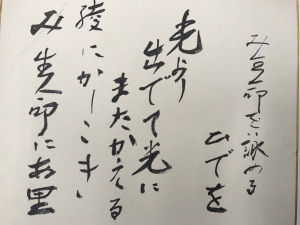 み生命を詠める
ひでを
光より
出でて光に
またかえる
綾にかしこき
み生命に